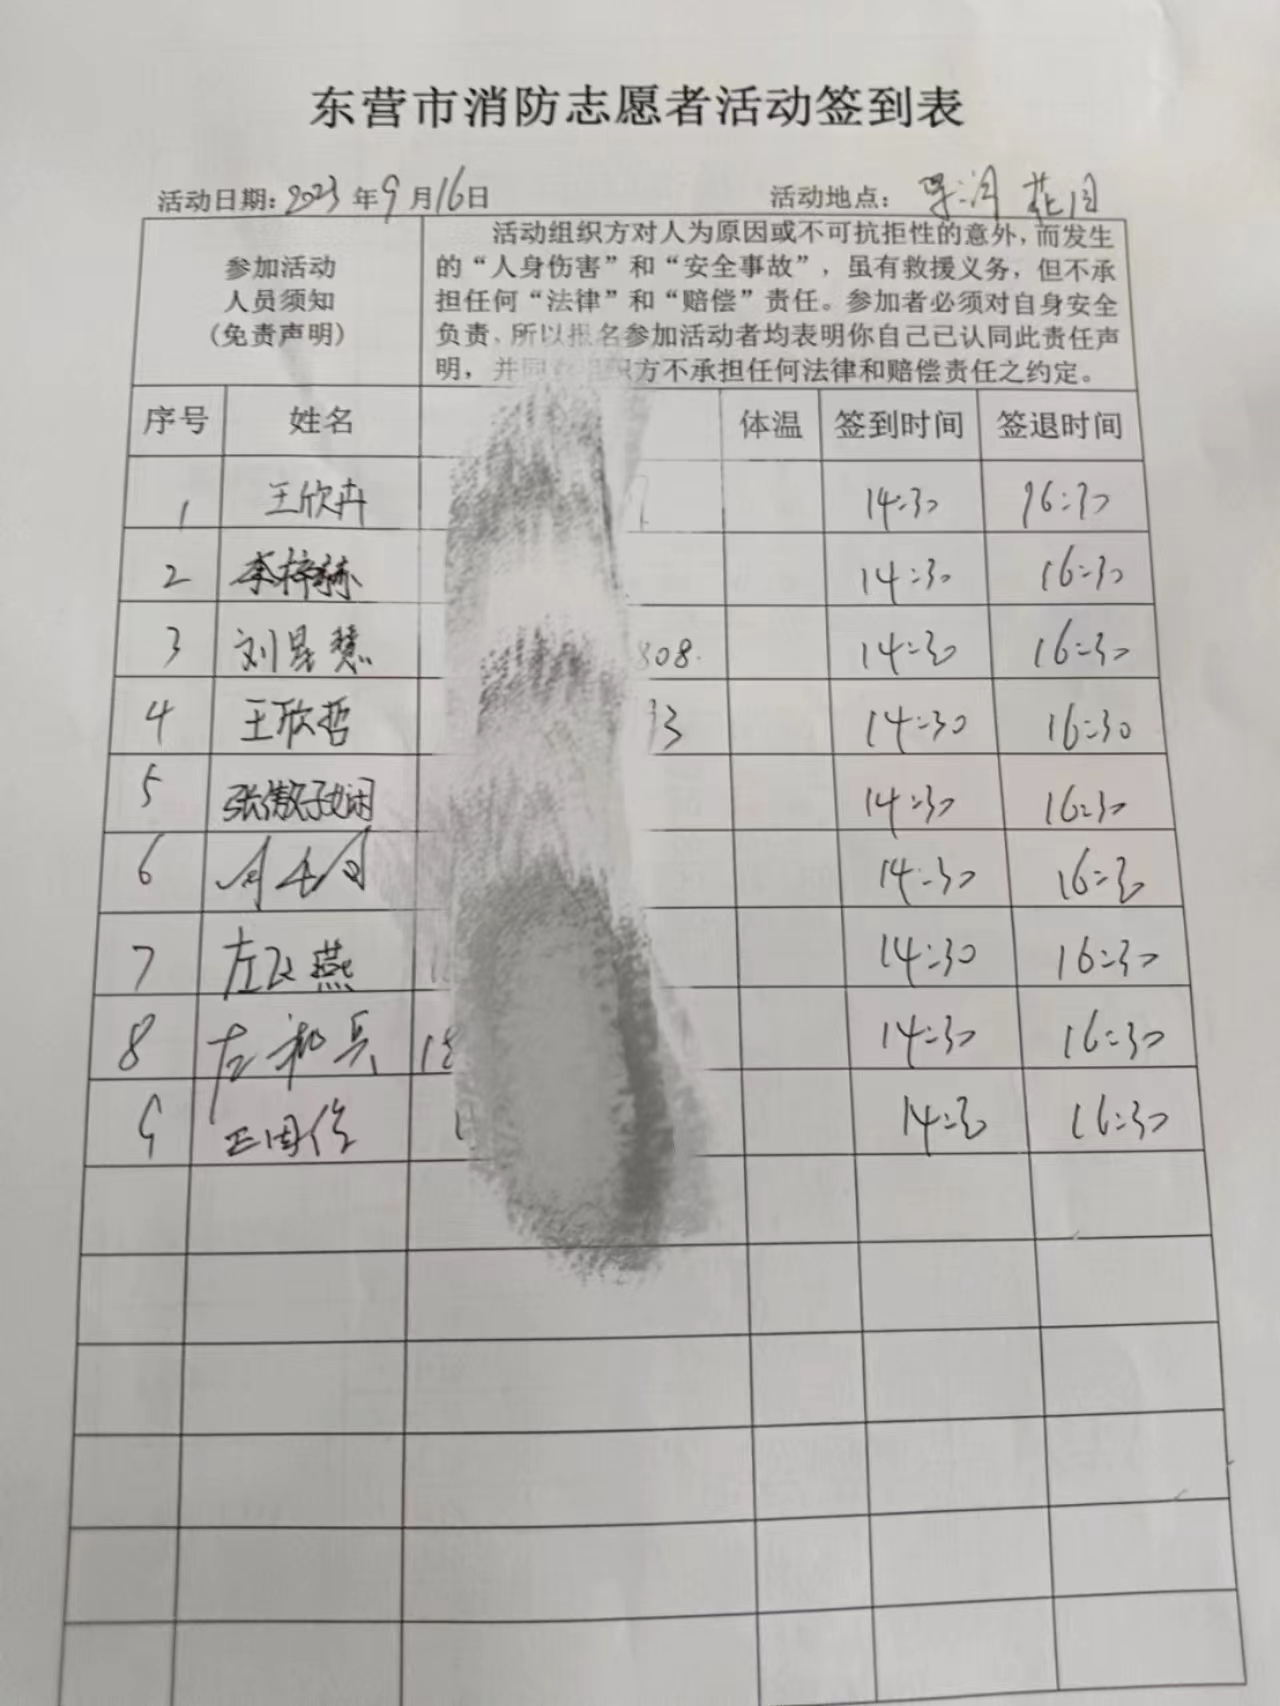 东营市消防志愿者活动签到表
活动日期: 2023年9月16日 活动地点: 花园
参加活动
人员须知
(免责声明)
活动组织方对人为原因或不可抗拒性的意外,而发生
的“人身伤害”和“安全事故”,虽有救援义务,但不承
担任何“法律”和“赔偿”责任。参加者必须对自身安全
负责,所以报名参加活动者均表明你自己已认同此责任声
明,并同 织方不承担任何法律和赔偿责任之约定。
序号 姓名 体温 签到时间 签退时间
1 王欣卉 14:30 16:30
2 李梓赫 14:30 16:30
3 刘星慧 808. 14:30 16:30
4 王欣哲 93 14:30 16:30
5 张傲子娴 14:30 16:30
6 14:30 16:30
7 左飞燕 14:30 16:30
8 左和兵 18 14:30 16:30
9 王国俊 1 14:30 16:30